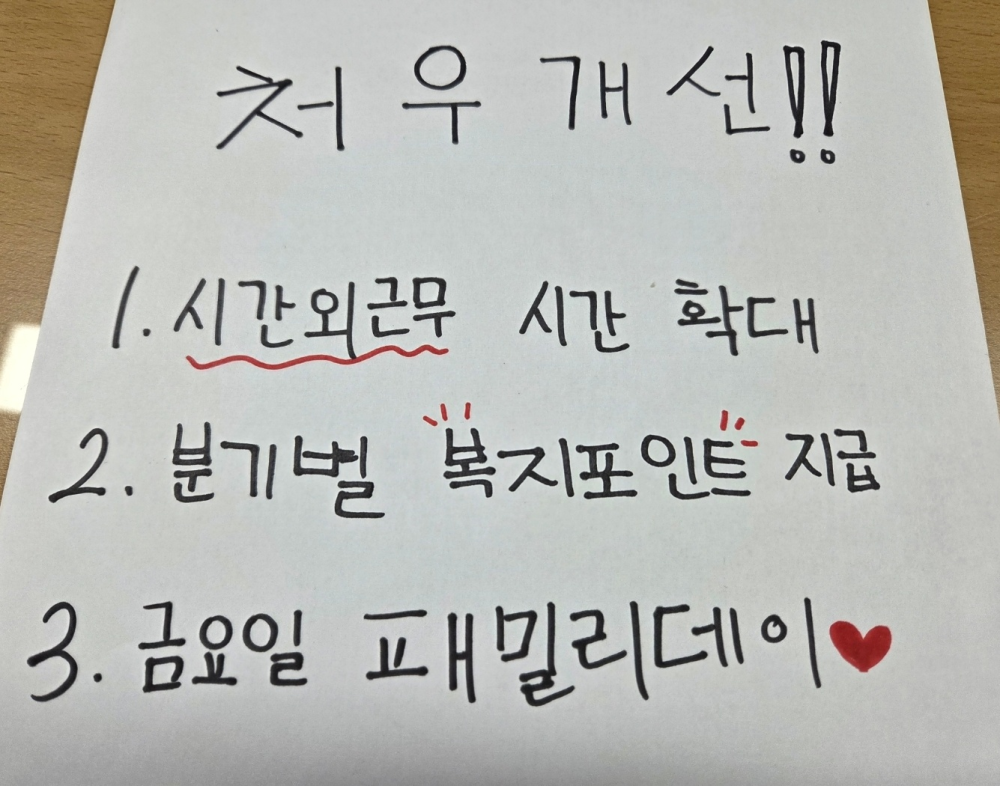 처우개선!!
1. 시간외근무 시간 확대
2. 분기별 복지포인트 지급
3. 금요일 패밀리데이♥